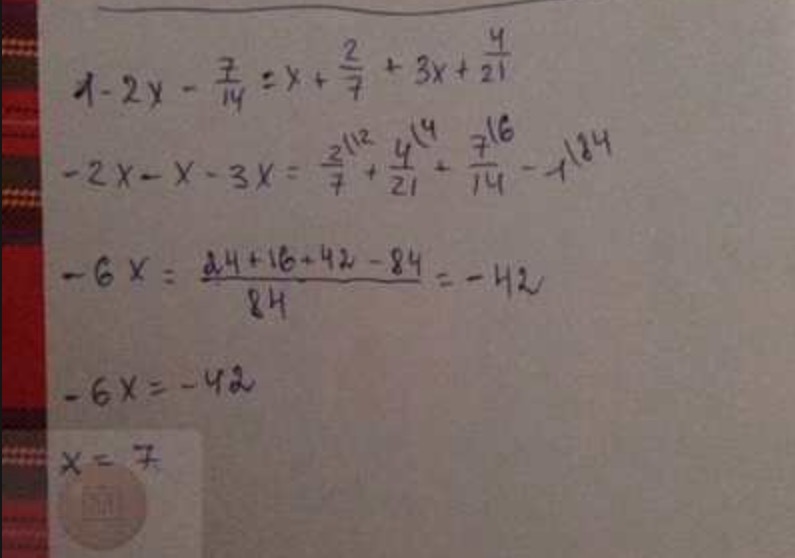 1 - 2x - 7/14 = x + 2/7 + 3x + 4/21
-2x - x - 3x = 2/7 \12 + 4/21 \4 + 7/14 \6 - 1 \84
-6x = 24+16+42-84/84 = -42
-6x = -42
x = 7